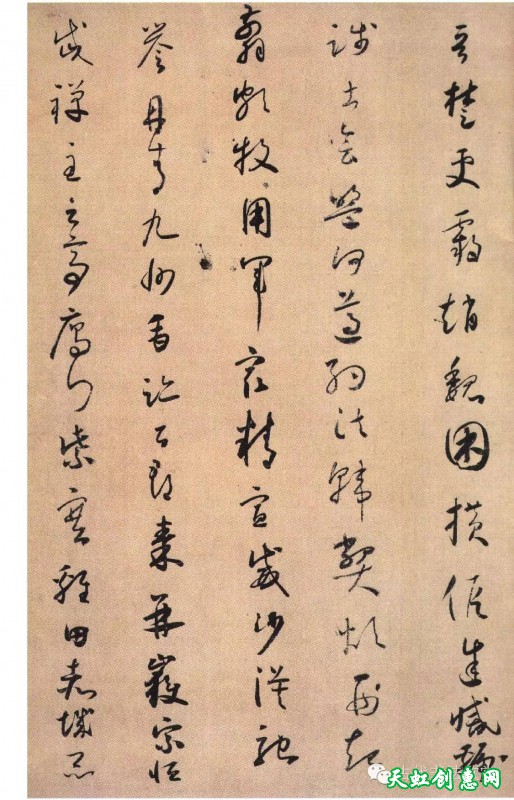 晋楚更霸趙魏困横假途滅虢
踐土會盟何遵約法韓弊煩刑起
翦頗牧用軍最精宣威沙漠馳
譽丹青九州禹跡百郡秦并嶽宗恒
岱禪主云亭雁門紫塞雞田赤城昆
天虹创惠网